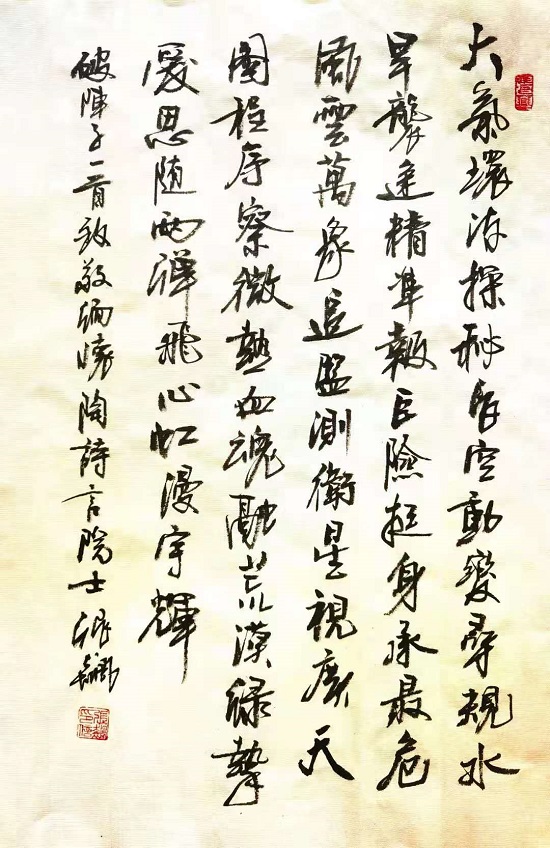 大氣環流探秘时空動變尋規水
旱襲逢精準報巨險挺身承最危
風雲萬象追監測衛星視廣天
圖程序察微熱血魂融荒漠綠摯
愛思随兩彈飛心虹漫宇輝
破陣子一首致敬緬懷陶詩言院士張